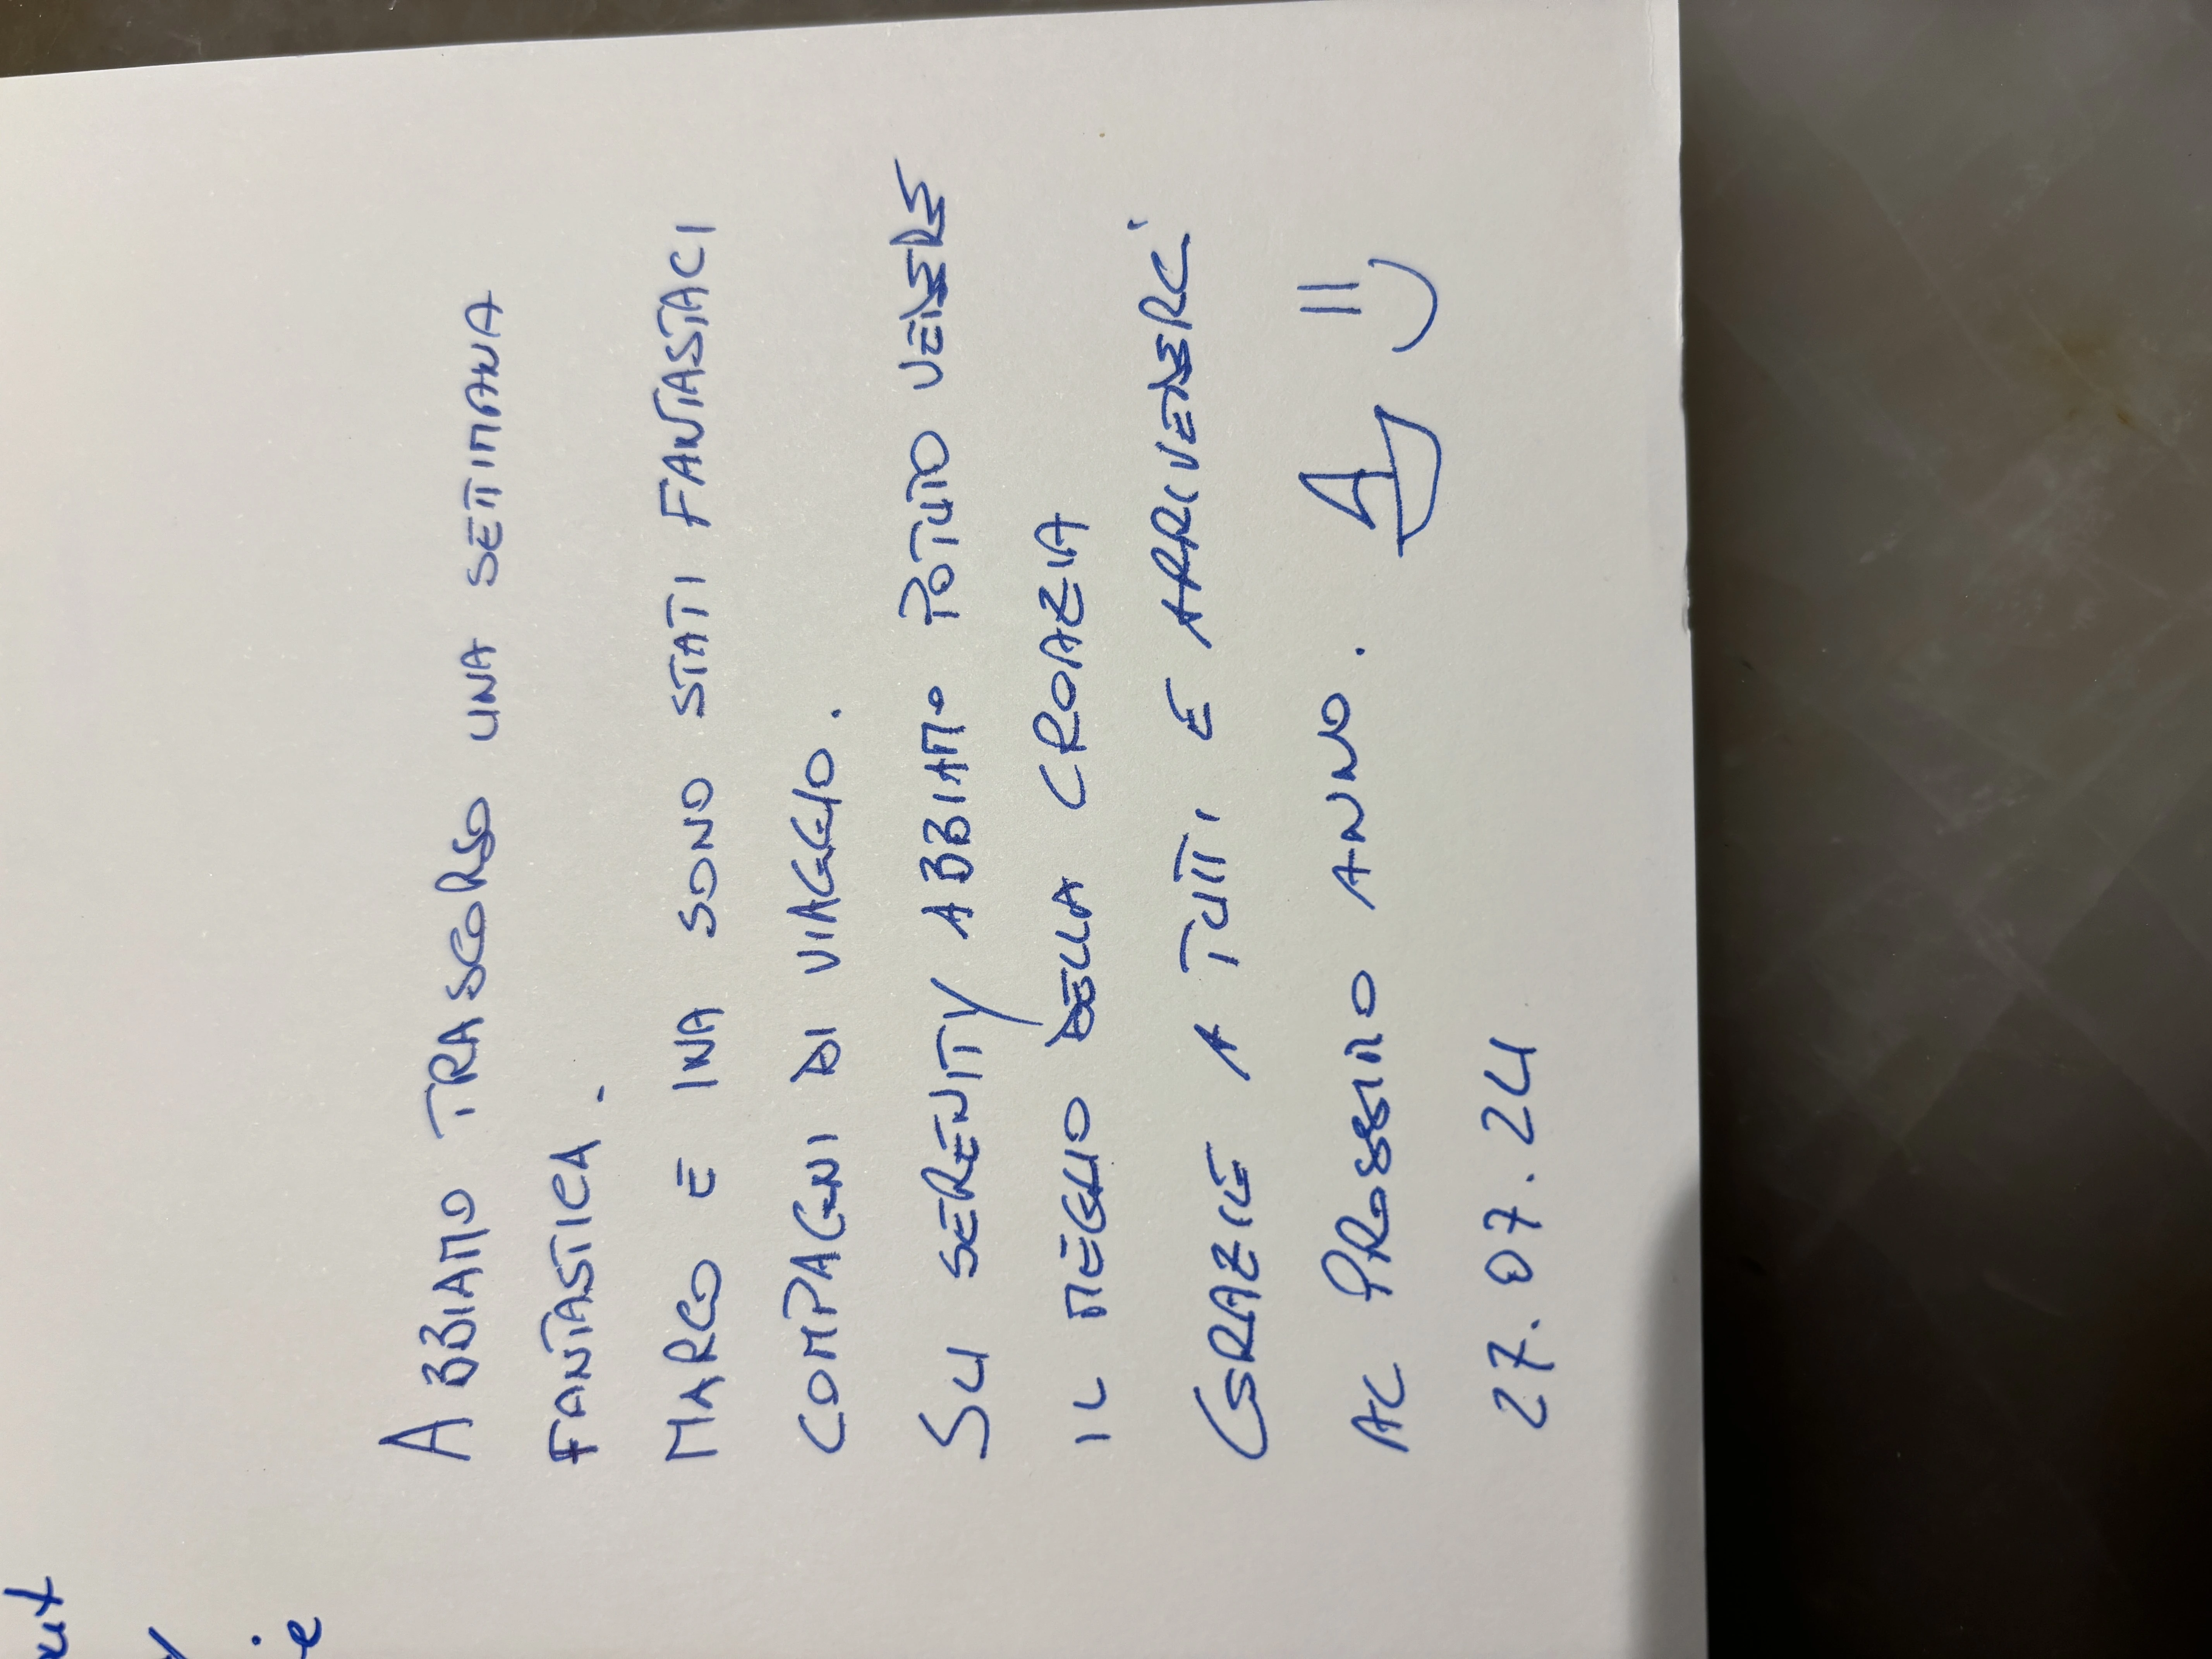 ABBIAMO TRASCORSO UNA SETTIMANA
FANTASTICA.
MARCO E INA SONO STATI FANTASTACI
COMPAGNI DI VIAGGIO.
SU SERENITY ABBIAMO POTUTO VEDERE
IL MEGLIO DELLA CROAZIA
GRAZIE A TUTTI E ARRIVEDERCI
AL PROSSIMO ANNO.
27.07.24